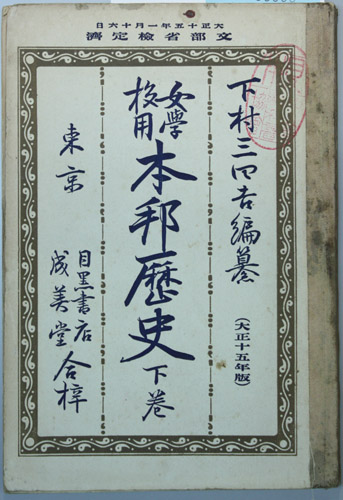 大正十五年一月十六日
文部省検定濟
下村三四吉編纂
(大正十五年版)
女學
校用
本邦歴史下巻
東京
目黒書店
成美堂
合梓